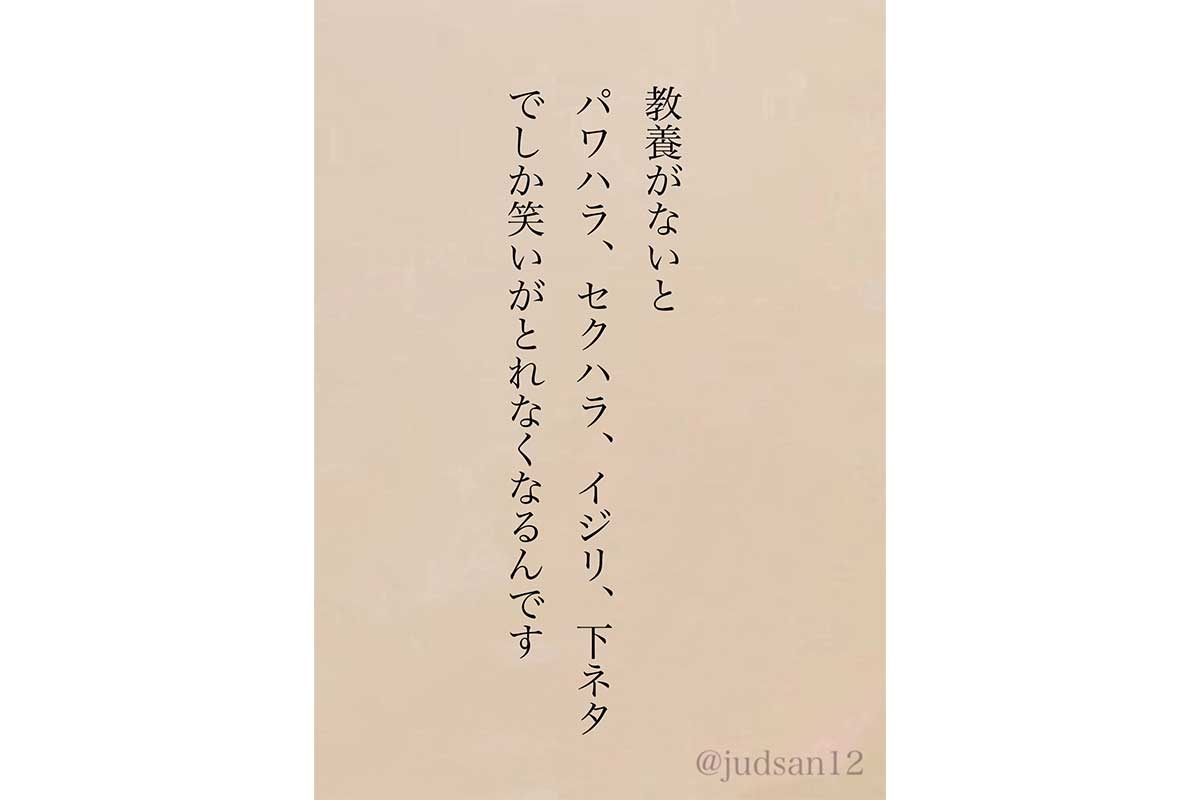 教養がないと
パワハラ、セクハラ、イジリ、下ネタ
でしか笑いがとれなくなるんです
@judsan12